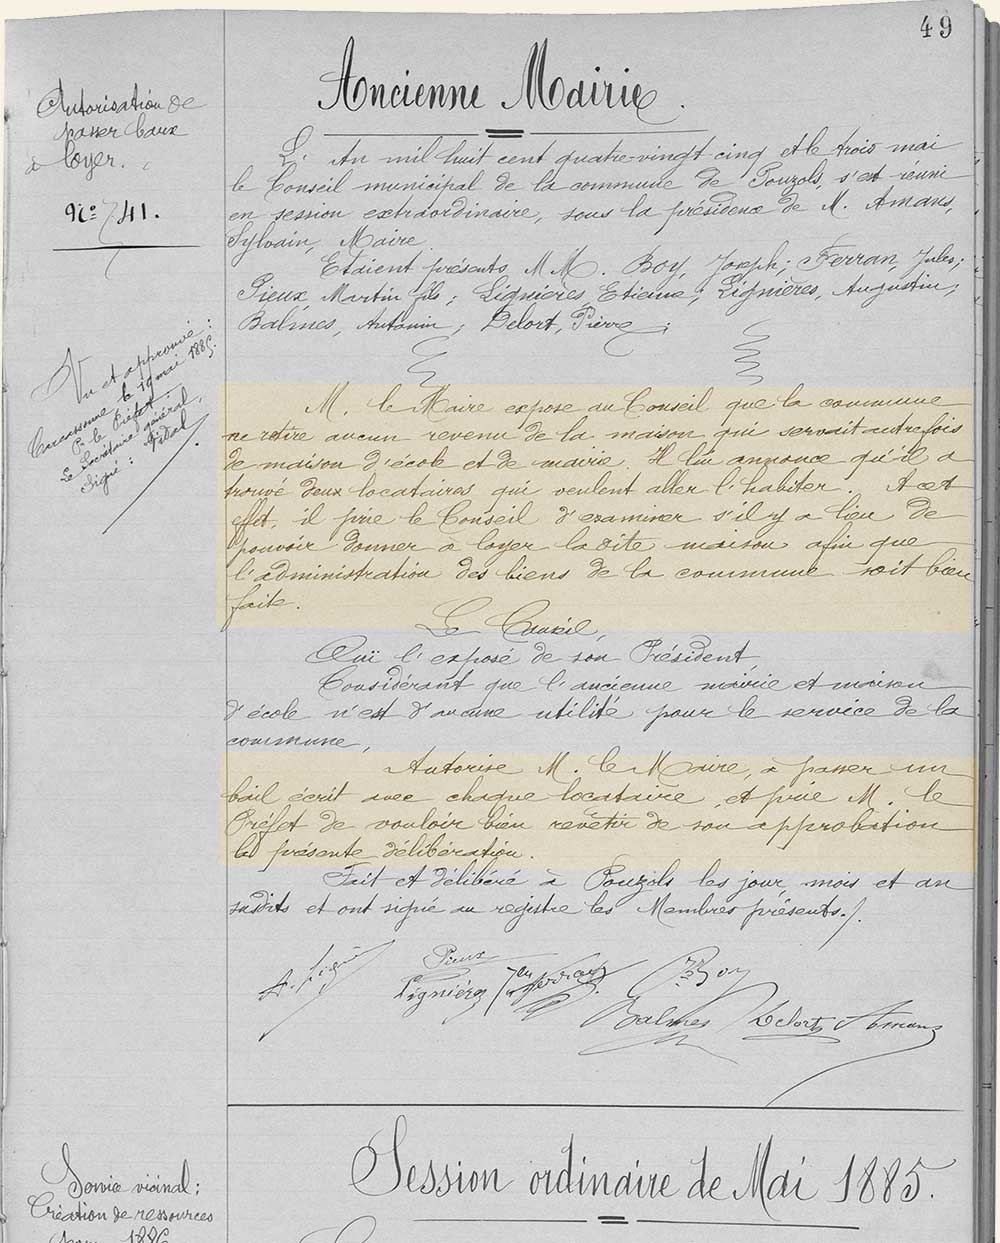 49
Ancienne Mairie.
Autorisation de
passer baux
à loyer.
No 41.
L'An mil huit cent quatre-vingt cinq et le trois mai
le Conseil municipal de la commune de Pouzols, s'est réuni
en session extraordinaire, sous la présidence de M. Amans,
Sylvain, Maire.
Etaient présents MM. Boy, Joseph; Ferran, Jules;
Pieux Martin fils; Lignières, Etienne; Lignières, Augustin;
Balmes, Antonin; Delort, Pierre;
Vu et approuvé:
Carcassonne le 19 mai 1885.
P. le Préfet:
Le Secrétaire général,
Signé: Vidal
M. le Maire expose au Conseil que la commune
ne retire aucun revenu de la maison qui servait autrefois
de maison d'école et de mairie. Il lui annonce qu'il a
trouvé deux locataires qui veulent aller l'habiter. A cet
effet, il prie le Conseil d'examiner s'il y a lieu de
pouvoir donner à loyer la dite maison afin que
l'administration des biens de la commune soit bien
faite.
Le Conseil,
Ouï l'exposé de son Président,
Considérant que l'ancienne mairie et maison
d'école n'est d'aucune utilité pour le service de la
commune,
Autorise M. le Maire, à passer un
bail écrit avec chaque locataire, et prie M. le
Préfet de vouloir bien revêtir de son approbation
la présente délibération.
Fait et délibéré à Pouzols les jour, mois et an
susdits et ont signé au registre les Membres présents./.
Pieux
Lignières Ferran Boy
Balmes Delort Amans
Session ordinaire de Mai 1885.
Service vicinal:
Création de ressources
pour 1886